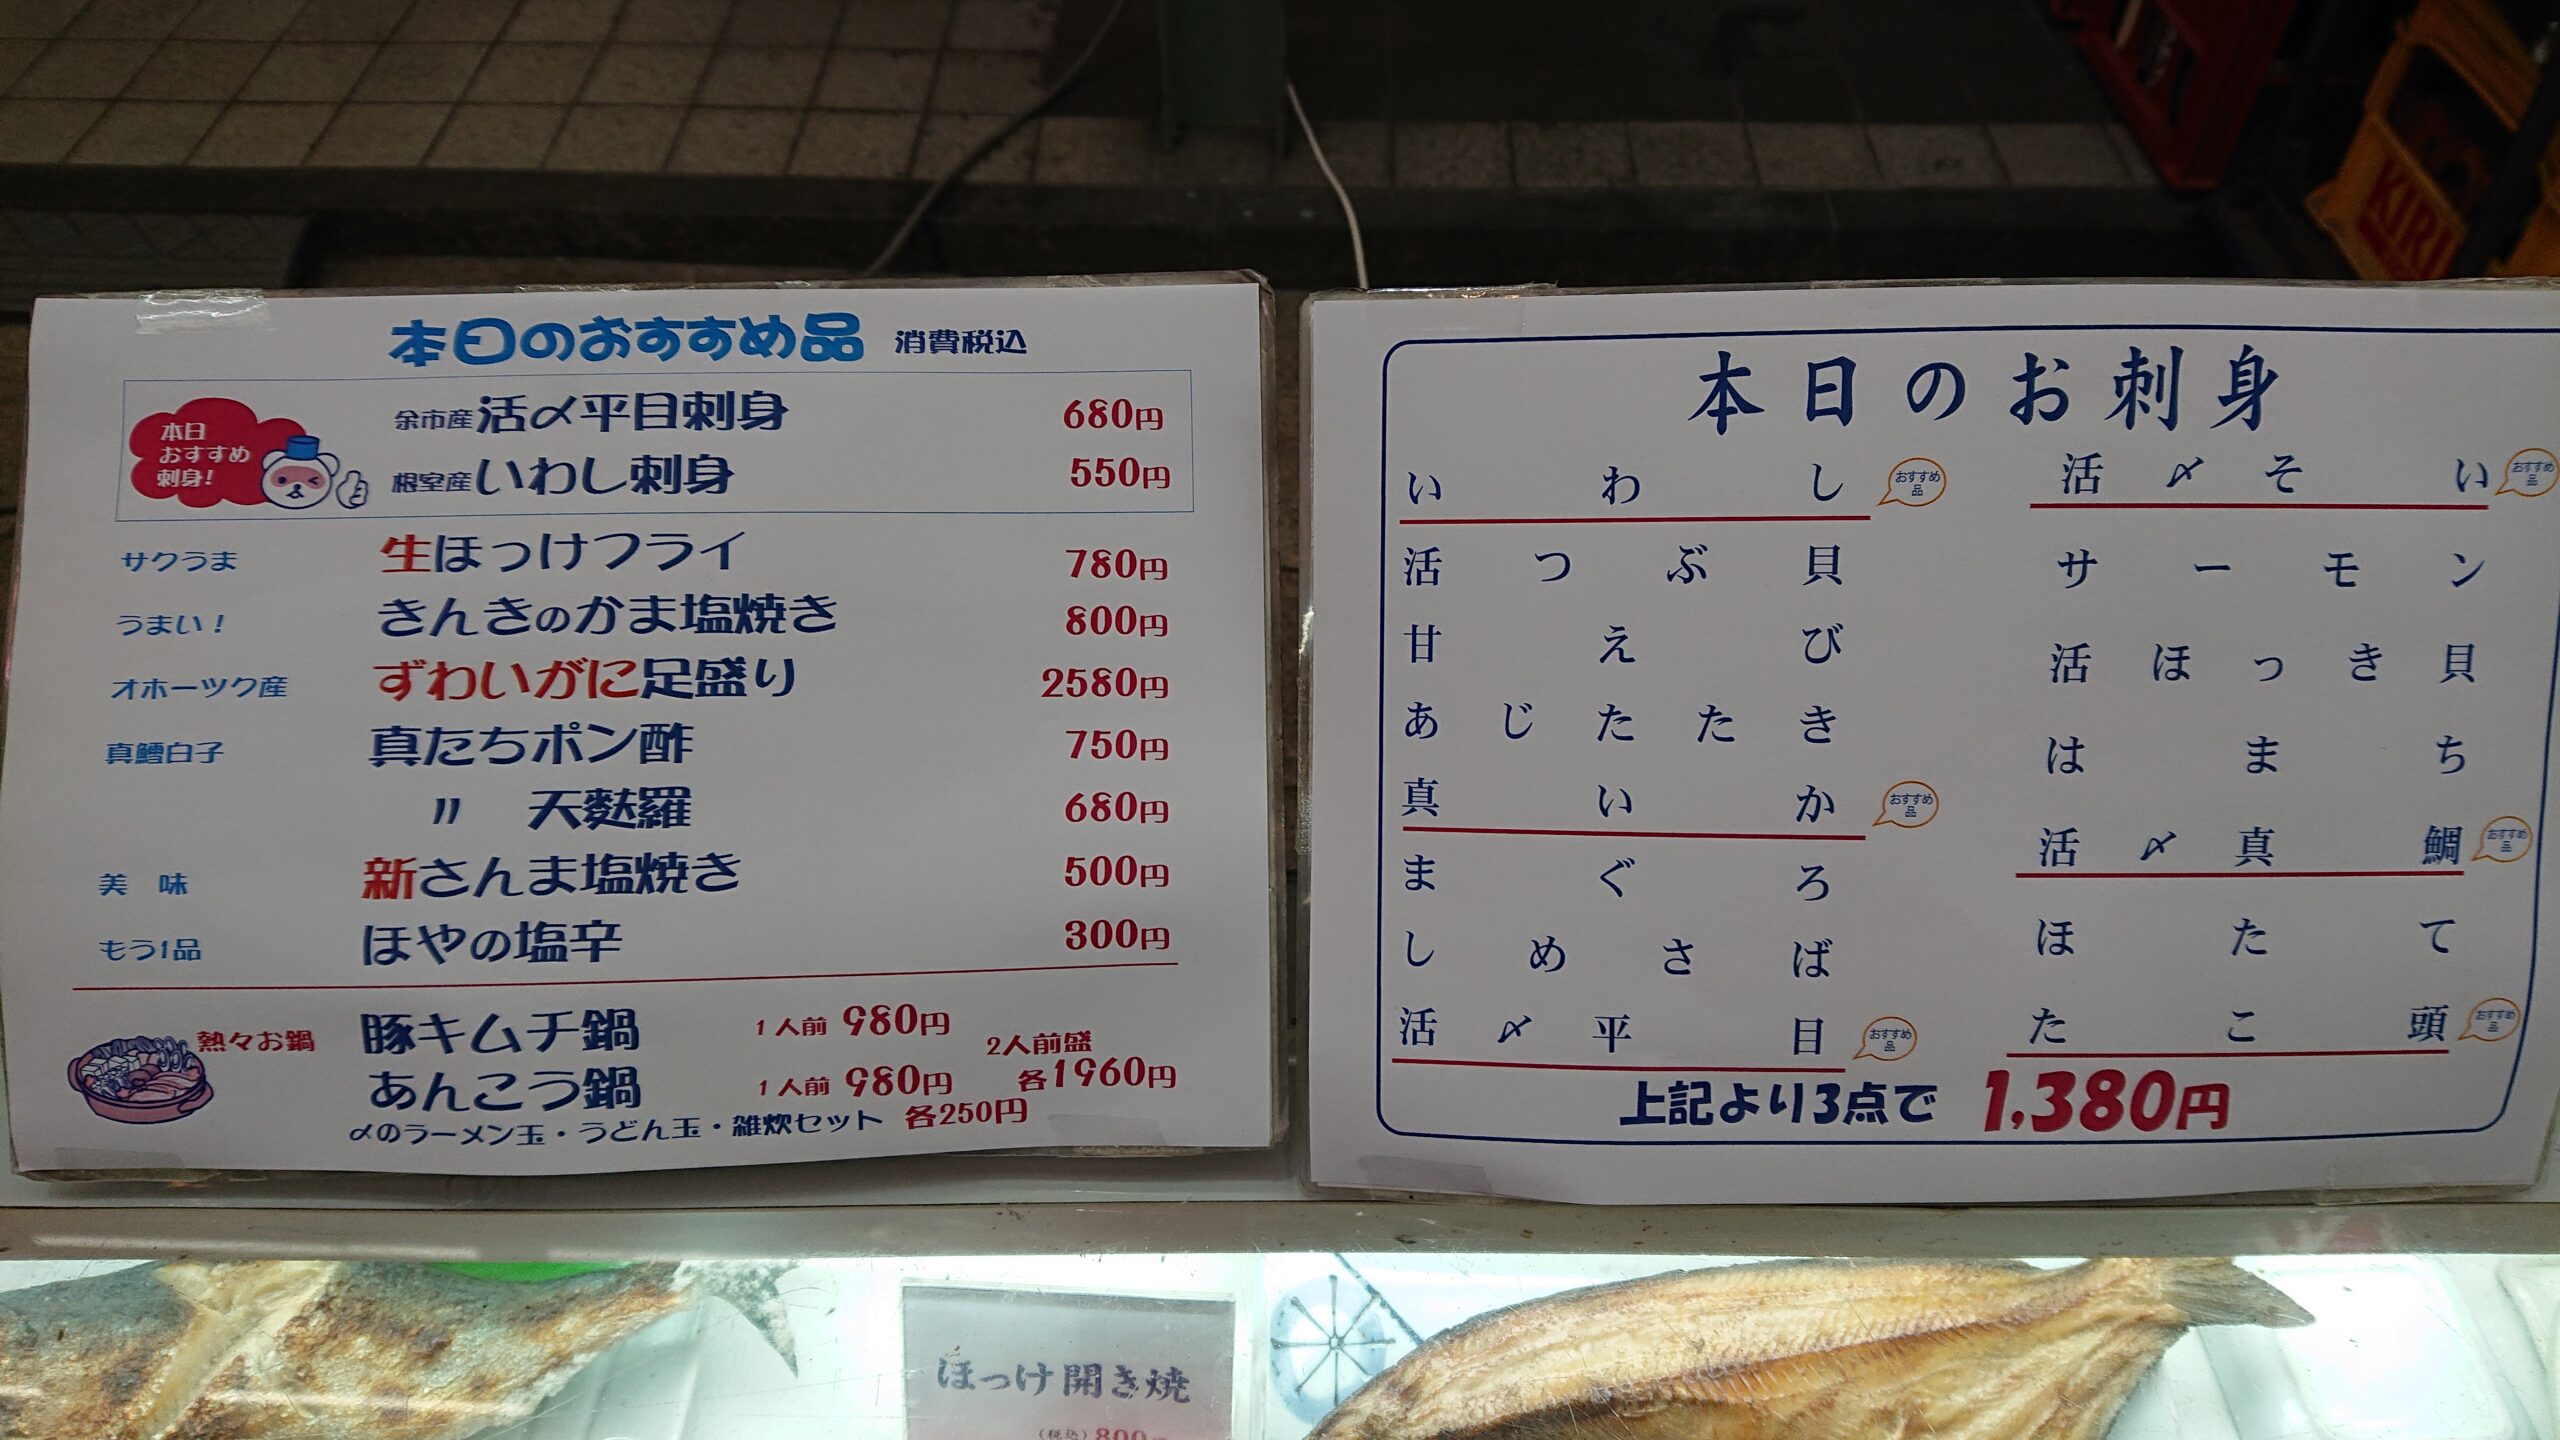 本日のおすすめ品 消費税込
本日
おすすめ
刺身!
余市産 活〆平目刺身 680円
根室産 いわし刺身 550円
サクうま 生ほっけフライ 780円
うまい! きんきのかま塩焼き 800円
オホーツク産 ずわいがに足盛り 2580円
真鱈白子 真たちポン酢 750円
〃 天麩羅 680円
美 味 新さんま塩焼き 500円
もう1品 ほやの塩辛 300円
熱々お鍋 豚キムチ鍋 1人前 980円
あんこう鍋 1人前 980円
2人前盛
各1960円
〆のラーメン玉・うどん玉・雑炊セット 各250円
本日のお刺身
いわし おすすめ品
活つぶ貝
甘えび
あじたたき
真いか おすすめ品
まぐろ
しめさば
活〆平目 おすすめ品
活〆そい おすすめ品
サーモン
活ほっき貝
はまち
活〆真鯛 おすすめ品
ほたて
たこ頭 おすすめ品
上記より3点で 1,380円
ほっけ開き焼
(税込) 800円
KIRI